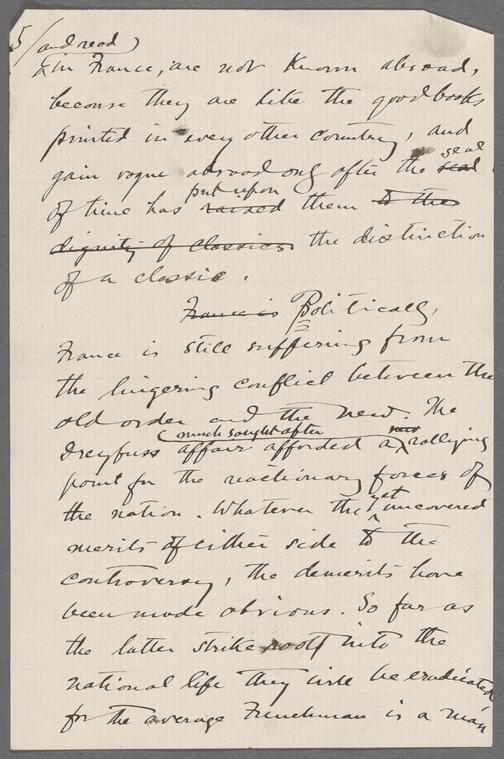 5/ and read
in France, are not known abroad,
because they are like the good books
printed in every other country, and
gain vogue abroad only after the seal seal
of time has put upon raised them to the
dignity of classics the distinction
of a classic.
France is Politically,
France is still suffering from
the lingering conflict between the
old order and the new. The
Dreyfuss affair afforded a much sought after rallying
point for the reactionary forces of
the nation. Whatever the yet uncovered
merits of either side to the
controversy, the demerits have
been made obvious. So far as
the latter strike root into the
national life they will be eradicated
for the average Frenchman is a man